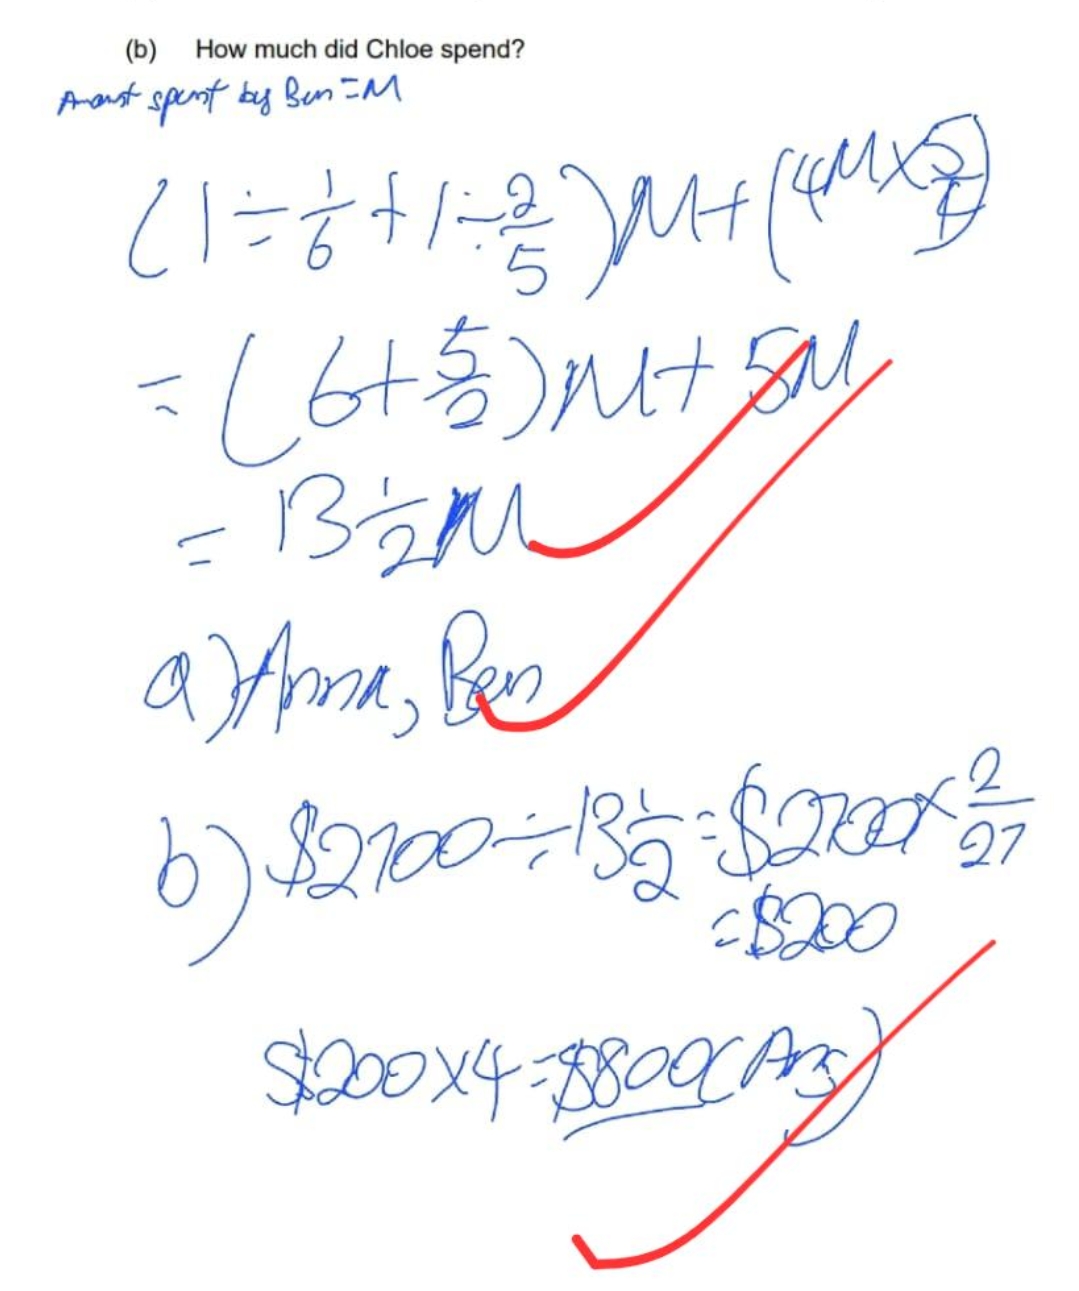 (b) How much did Chloe spend?
Amount spent by Ben = M
(1 ÷ 1/6 + 1 ÷ 2/5) M + (4M × 5/4)
= (6 + 5/2) M + 5M
= 13 1/2 M
a) Anna, Ben
b) $2700 ÷ 13 1/2 = $2700 × 2/27
= $200
$200 × 4 = $800 (Ans)